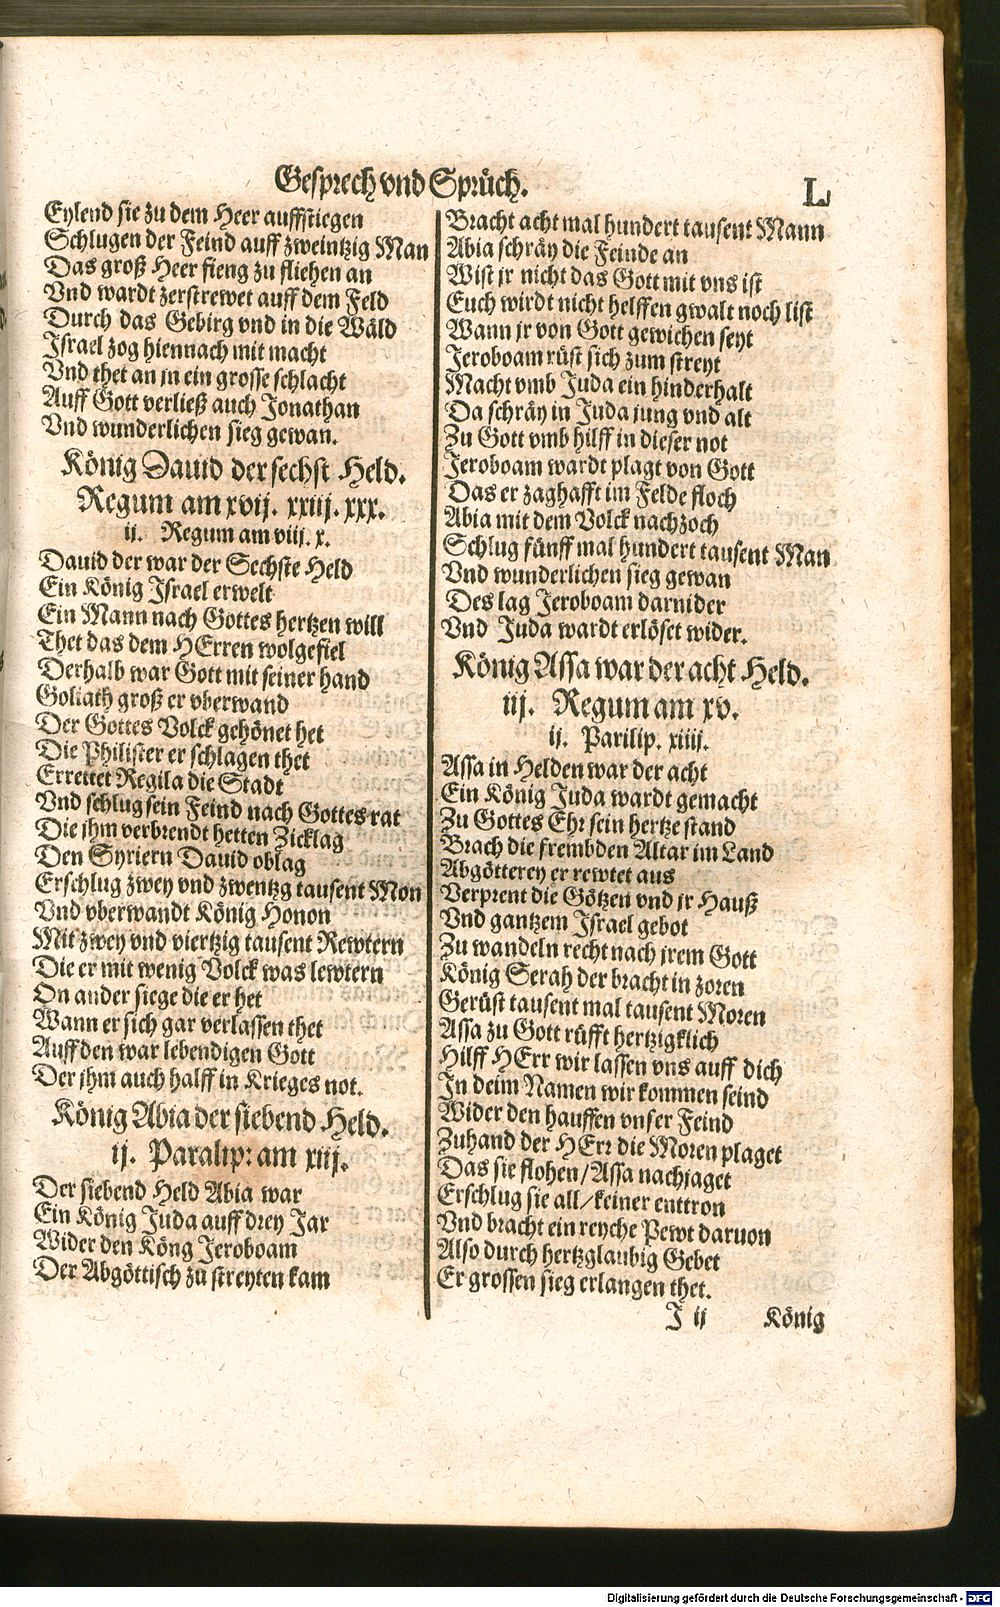 Gesprech vnd Sprüch.
L
Eylend sie zu dem Heer auffstiegen
Schlugen der Feind auff zweintzig Man
Das groß Heer fieng zu fliehen an
Vnd wardt zerstrewet auff dem Feld
Durch das Gebirg vnd in die Wäld
Israel zog hiennach mit macht
Vnd thet an jn ein grosse schlacht
Auff Gott verließ auch Jonathan
Vnd wunderlichen sieg gewan.
König Dauid der sechst Held.
Regum am xvij. xxiij. xxx.
ij. Regum am viij. x.
Dauid der war der Sechste Held
Ein König Israel erwelt
Ein Mann nach Gottes hertzen will
Thet das dem HErren wolgefiel
Derhalb war Gott mit seiner hand
Goliath groß er vberwand
Der Gottes Volck gehönet het
Die Philister er schlagen thet
Errettet Regila die Stadt
Vnd schlug sein Feind nach Gottes rat
Die jhm verbrendt hetten Zicklag
Den Syriern Dauid oblag
Erschlug zwey vnd zwentzg tausent Mon
Vnd vberwandt König Honon
Mit zwey vnd viertzig tausent Rewtern
Die er mit wenig Volck was lewtern
On ander siege die er het
Wann er sich gar verlassen thet
Auff den war lebendigen Gott
Der jhm auch halff in Krieges not.
König Abia der siebend Held.
ij. Paralip: am xiij.
Der siebend Held Abia war
Ein König Juda auff drey Jar
Wider den Köng Jeroboam
Der Abgöttisch zu streyten kam
Bracht acht mal hundert tausent Mann
Abia schräy die Feinde an
Wist jr nicht das Gott mit vns ist
Euch wirdt nicht helffen gwalt noch list
Wann jr von Gott gewichen seyt
Jeroboam rüst sich zum streyt
Macht vmb Juda ein hinderhalt
Da schräy in Juda jung vnd alt
Zu Gott vmb hilff in dieser not
Jeroboam wardt plagt von Gott
Das er zaghafft im Felde floch
Abia mit dem Volck nachzoch
Schlug fünff mal hundert tausent Man
Vnd wunderlichen sieg gewan
Des lag Jeroboam darnider
Vnd Juda wardt erlöset wider.
König Assa war der acht Held.
iij. Regum am xv.
ij. Parilip. xiiij.
Assa in Helden war der acht
Ein König Juda wardt gemacht
Zu Gottes Ehr sein hertze stand
Brach die frembden Altar im Land
Abgötterey er rewtet aus
Verprent die Götzen vnd jr Hauß
Vnd gantzem Israel gebot
Zu wandeln recht nach jrem Gott
König Serah der bracht in zoren
Gerüst tausent mal tausent Moren
Assa zu Gott rüfft hertzigklich
Hilff HErr wir lassen vns auff dich
In deim Namen wir kommen seind
Wider den hauffen vnser Feind
Zuhand der HErr die Moren plaget
Das sie flohen/Assa nachjaget
Erschlug sie all/keiner enttron
Vnd bracht ein reyche Pewt daruon
Also durch hertzglaubig Gebet
Er grossen sieg erlangen thet.
J ij König
Digitalisierung gefördert durch die Deutsche Forschungsgemeinschaft - DFG